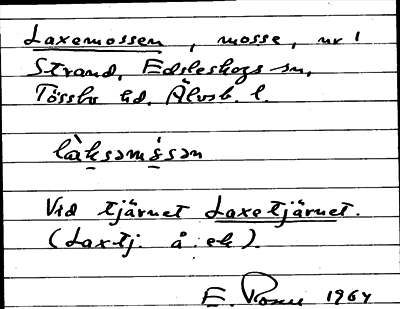 Laxemossen, mosse, nr 1
Strand, Edsleskogs sn,
Tössbo hd, Älvsb. l.
làksəmòsən
Vid tjärnet Laxetjärnet.
(Laxtj. å: ek).
E. 1964